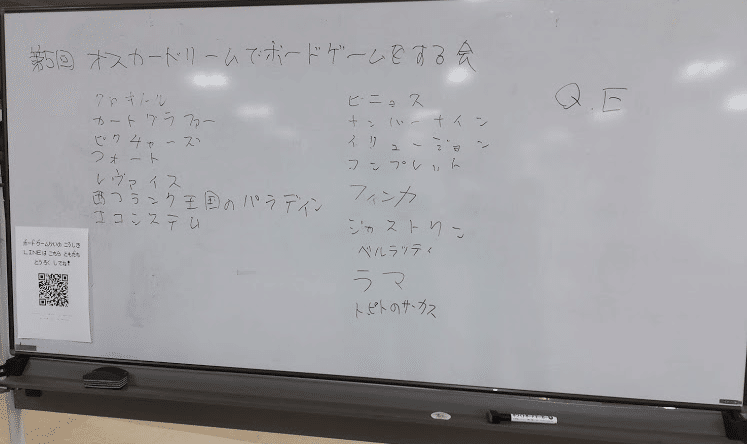 第5回 オスカードリームでボードゲームをする会
カートグラファー
ピクチャーズ
フォート
レヴァイス
西フランク王国のパラディン
エコシステム
ビニョス
ナンバーナイン
イリュージョン
コンプレット
フィンカ
ジャストワン
ベルラッティ
ラマ
トピトのサーカス
Q.E
ボードゲームかいの こうしき
LINEは こちら ともだち
とうろく してね!